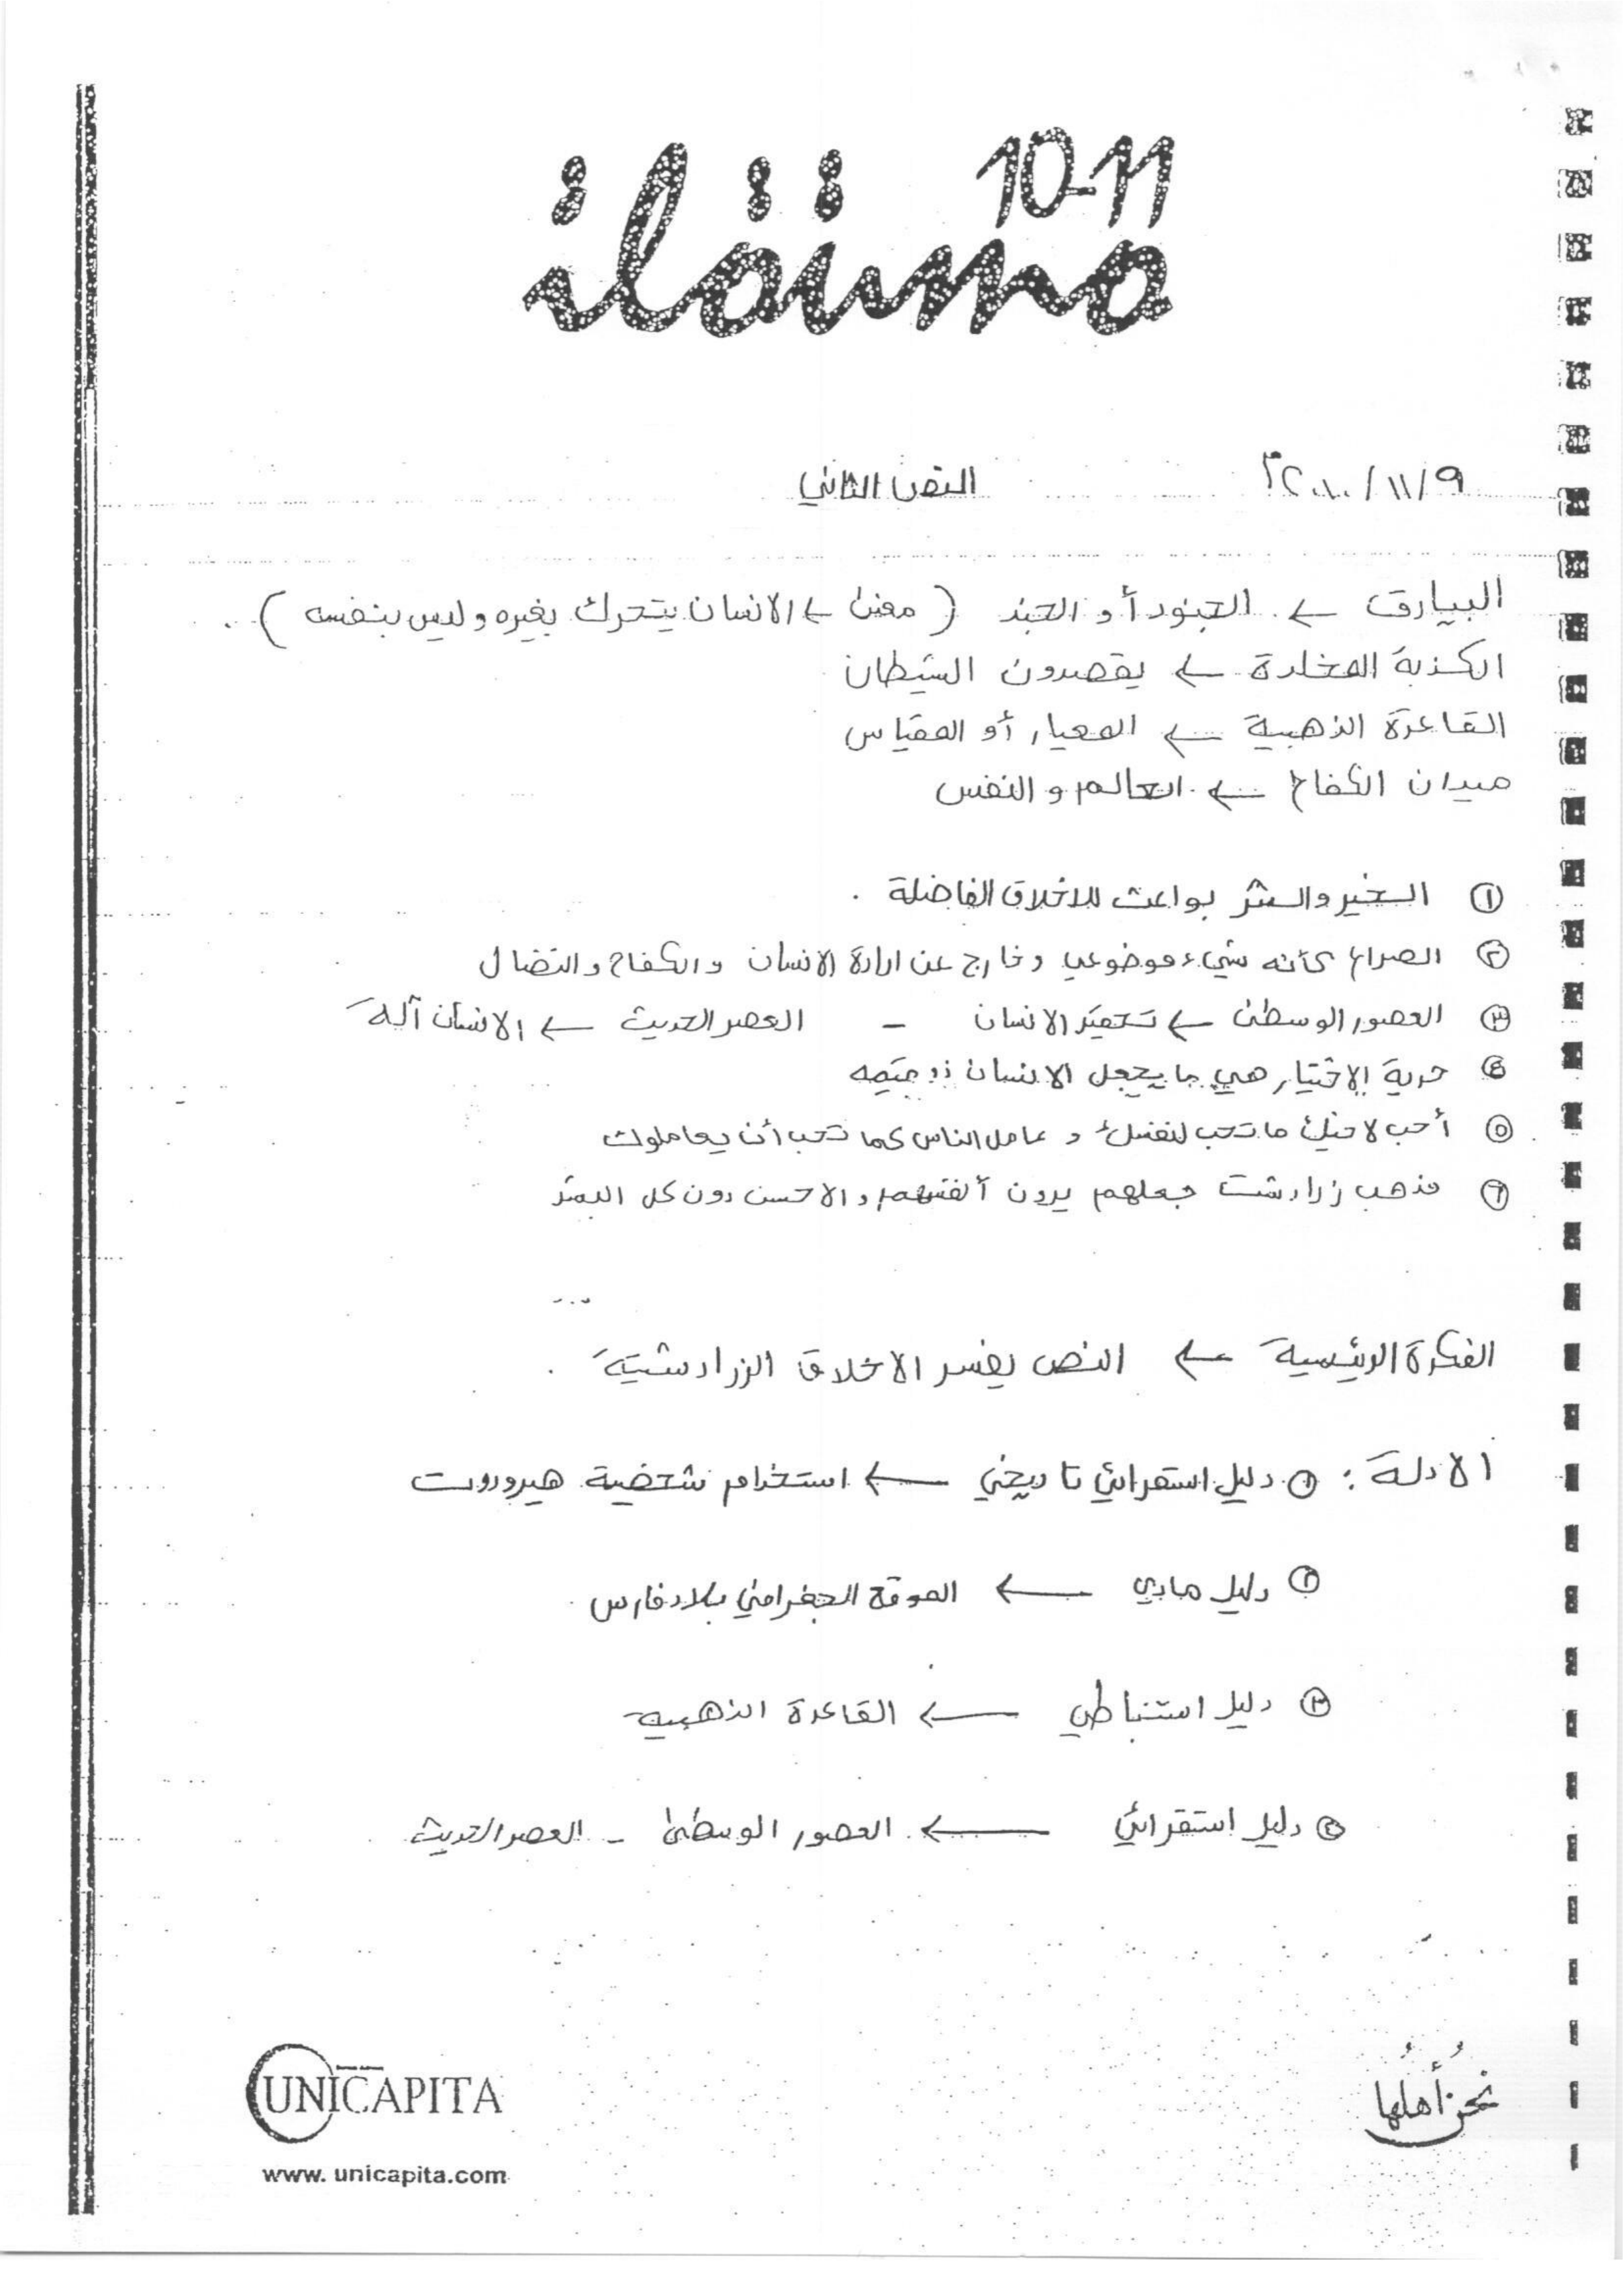 10-11
٩/١١/٢٠١٠م النص الثاني
البيارق ← الجنود أو الجند (معنى ← الانسان يتحرك بغيره وليس بنفسه).
الكذبة المخلدة ← يقصدون الشيطان
القاعدة الذهبية ← المعيار أو المقياس
ميدان الكفاح ← العالم و النفس
① الخير والشر بواعث للاخلاق الفاضلة .
② الصراع كأنه شيء موضوعي وخارج عن ارادة الانسان والكفاح والنضال
③ العصور الوسطى ← تحقير الانسان – العصر الحديث ← الانسان آلة
④ حرية الاختيار هي ما يجعل الانسان ذو قيمه
⑤ أحب لاخيك ما تحب لنفسك و عامل الناس كما تحب أن يعاملوك
⑥ مذهب زرادشت جعلهم يرون أنفسهم الاحسن دون كل البشر
الفكرة الرئيسية ← النص يفسر الاخلاق الزرادشتية .
الادلة : ① دليل استقرائي تاريخي ← استخدام شخصية هيرودوت
② دليل مادي ← الموقع الجغرافي بلاد فارس
③ دليل استنباطي ← القاعدة الذهبية
④ دليل استقرائي ← العصور الوسطى - العصر الحديث
نحن أهلها
UNICAPITA
www. unicapita.com